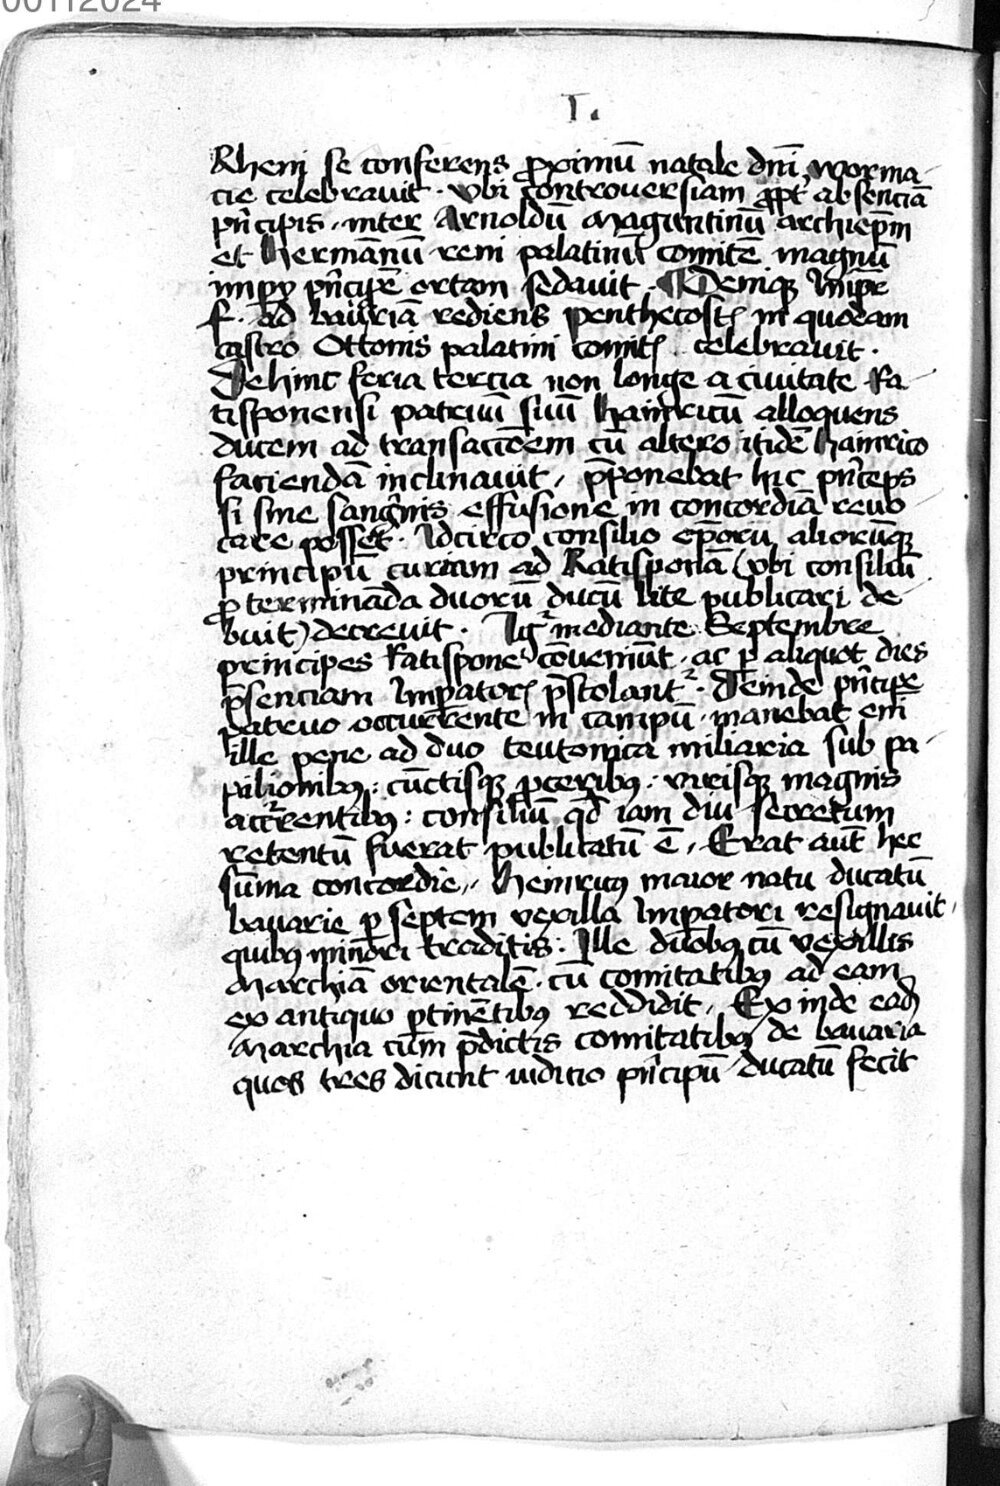 00112024
I.
Rheni se conferens ꝓximū natale dn̄i worma-
cie celebravit · vbi controuersiam ꝓpt̄ absenciā
pn̄cipis · inter Arnoldū Maguntinū archiep̄m
et Hermānū reni palatinū comitē magnū
impij pn̄cipē ortam sedavit · ¶ Deniqꝫ Imp̄r
f · ad baiuriā rediens penthecost̄ in quodam
castro Ottonis palatini comit̄ celebravit ·
Dehinc feria tercia non longe a civitate Ra-
tisponensi patruū suū hainricū alloquens
ducem ad transaccōem cū altero itidē hainrico
faciendā inclinavit, p̄ponebat hic pn̄ceps
si sine sangnīs effusione in concordiā reuo
care posset · Idcirco consilio ep̄orū aliorūqꝫ
principū curiam ad Ratisponā (vbi consiliū
ꝓ termināda duorū ducū lite publicari de-
buit) decrevit · Ig mediante Septembre
principes Ratispone cōveniūt · ac ꝑ aliquot dies
p̄senciam Impator̄ p̄stolant · Deinde pn̄cipe
patruo occurrente in campū · manebat eni
ille pene ad duo teutonica miliaria sub pa-
pilionibꝰ : cūctisqꝫ ꝓceribꝰ · virisqꝫ magnis
accr̄rentibꝰ : consiliū qd̄ iam diu secretum
retentū fuerat publicatū ē, Erat aūt hec
sūma concordie, Heinricꝰ maior natu ducatū
bauarie ꝑ septem vexilla Impatori resignavit ·
quibꝰ minori traditis : Ille duobꝰ cū vexillis
Marchiā orientalē · cū comitatibꝰ ad eam
ex antiquo ꝑtinētibꝰ reddidit, Ex inde ead̄
Marchia cum p̄dictis comitatibꝰ de bauaria
quos tres dicunt iudicio pn̄cipū ducatū fecit